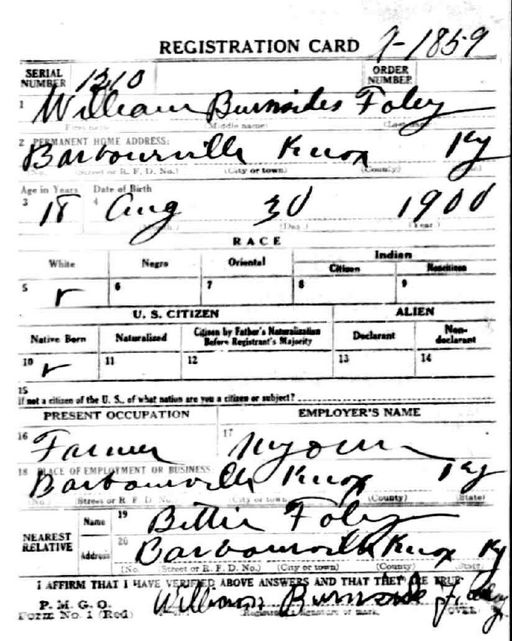 REGISTRATION CARD 1-1859
SERIAL NUMBER 1310 ORDER NUMBER
1 William Burnsides Foley
(Middle name)
2 PERMANENT HOME ADDRESS:
Barbourville Knox Ky
(No.) (Street or R. F. D. No.) (City or town) (County)
Age in Years Date of Birth
3 18 4 Aug 30 1900
(Day.) (Year.)
RACE
White Negro Oriental Indian
Citizen Noncitizen
5 6 7 8 9
U. S. CITIZEN ALIEN
Native Born Naturalized Citizen by Father's Naturalization Before Registrant's Majority Declarant Non-declarant
10 11 12 13 14
15
If not a citizen of the U. S., of what nation are you a citizen or subject?
PRESENT OCCUPATION EMPLOYER'S NAME
16 Farmer 17
18 PLACE OF EMPLOYMENT OR BUSINESS:
Barbourville Knox Ky
(No.) Street or R. F. D. No.) (City or town) (County) (State)
NEAREST RELATIVE Name 19 Bettie Foley
Address 20 Barbourville Knox Ky
(No. (Street or R. F. D. No.) (City or town) (County) (State)
I AFFIRM THAT I HAVE VERIFIED ABOVE ANSWERS AND THAT THEY ARE TRUE
P. M. G. O.
Form No. 1 (Red) William Burnside Foley
(Registrant's signature or mark) (OVER)